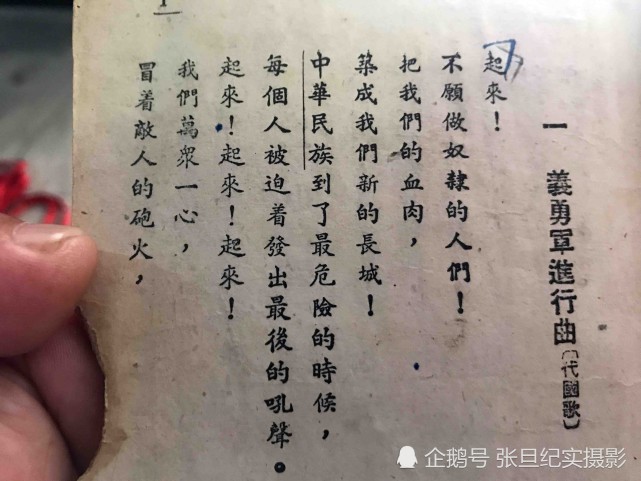 一 義勇軍進行曲〔代國歌〕
起來！
不願做奴隸的人們！
把我們的血肉，
築成我們新的長城！
中華民族到了最危險的時候，
每個人被迫着發出最後的吼聲。
起來！起來！起來！
我們萬眾一心，
冒着敵人的砲火，
企鹅号 张旦纪实摄影